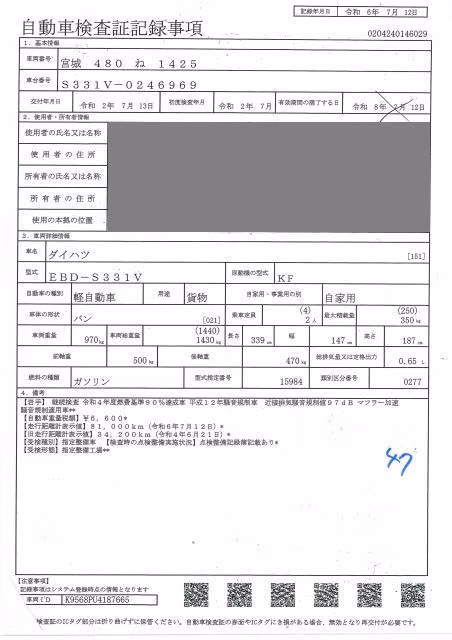 記録年月日 令和 6年 7月 12日
自動車検査証記録事項
0204240146029
1. 基本情報
車両番号 宮城 480 ね 1425
車台番号 S331V-0246969
交付年月日 令和 2年 7月 13日 初度検査年月 令和 2年 7月 有効期間の満了する日 令和 8年 7月 12日
2. 使用者・所有者情報
使用者の氏名又は名称
使用者の住所
所有者の氏名又は名称
所有者の住所
使用の本拠の位置
3. 車両詳細情報
車名 ダイハツ [151]
型式 EBD-S331V 原動機の型式 KF
自動車の種別 軽自動車 用途 貨物 自家用・事業用の別 自家用
車体の形状 バン [021] 乗車定員 (4) 2人 最大積載量 (250) 350kg
車両重量 970kg 車両総重量 (1440) 1430kg 長さ 339cm 幅 147cm 高さ 187cm
前軸重 500kg 後軸重 470kg 総排気量又は定格出力 0.65 L
燃料の種類 ガソリン 型式指定番号 15984 類別区分番号 0277
4. 備考
【岩手】 継続検査 令和4年度燃費基準90%達成車 平成12年騒音規制車 近接排気騒音規制値97dB マフラー加速
騒音規制適用車**
【自動車重量税額】¥6,600*
【走行距離計表示値】81,000km(令和6年7月12日)*
【旧走行距離計表示値】34,200km(令和4年6月21日)*
【受検種別】指定整備車 【検査時の点検整備実施状況】点検整備記録簿記載あり*
【受検形態】指定整備工場**
47
【注意事項】
記録事項はシステム登録時点の情報となります
車両ID K9568PU4187665
検査証のICタグ部分は折り曲げずに保管ください。自動車検査証の券面やICタグにき損がある場合、無効となり再交付が必要です。